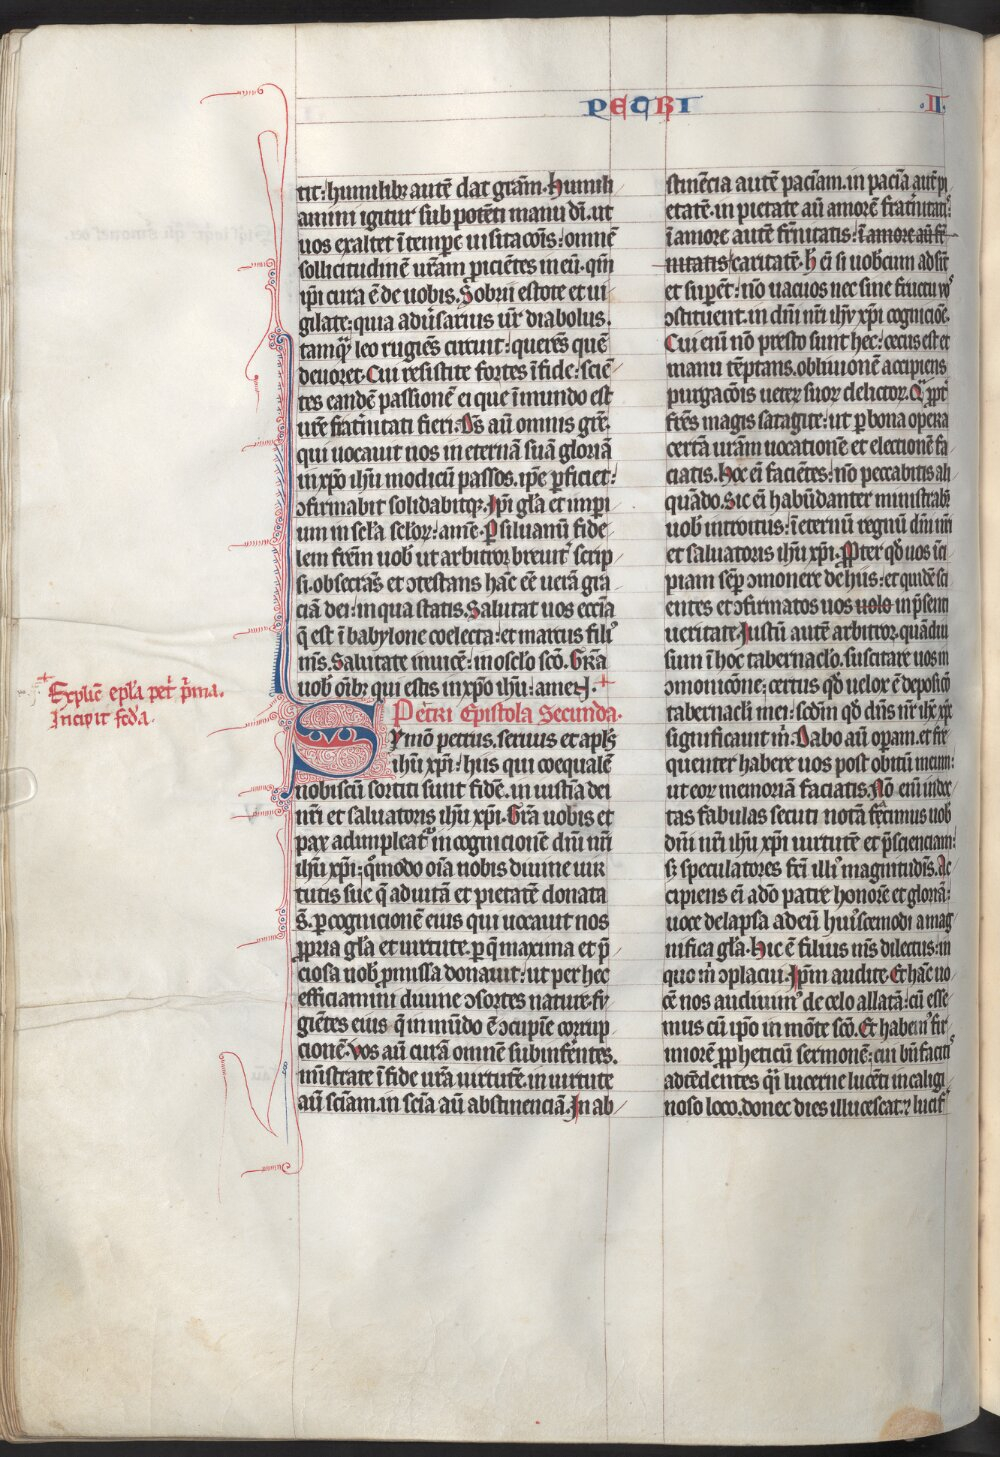 PETRI
.II.
tit: humilibꝫ autē dat grām. Humili
amini igitur sub potēti manu dī. ut
uos exaltet ī tempe uisitacōis: omnē
sollicitudinē urām ꝓiciētes in eū. qm̄
ip̄i cura ē de uobis. Sobrii estote et ui
gilate: quia aduˀsarius ur̄ diabolus.
tamqͣꝫ leo rugiēs circuit: querēs quē
deuoret. Cui resistite fortes ī fide: sciē
tes eandē passionē ei que ī mundo est
ure frat̄nitati fieri. Ds̄ aū omnis grē.
qui uocauit uos in eternā suā gloriā
in xp̄o ihū modicū passos. ip̄e ꝑficiet:
ↄfirmabit solidabitqꝫ. Ip̄i gl̄a et imꝑi
um in sc̄la sc̄loꝝ: amē. Per siluanū fide
lem frēm uob̄ ut arbitror breuit̄ scrip
si. obsecrās et ↄtestans hāc eē uerā gra
ciā dei: in qua statis. Salutat uos eccīa
q̄ est ī babylone coelecta: et marcus filiꝰ
ms̄. Salutate inuicē: in osclo sc̄o. Gr̄a
uob̄ oībꝫ qui estis in xp̄o ihū: amen. +
+
Explic̄ epl̄a pet̄ p̄ma.
Incipit scd̄a.
Petri Epistola Secunda.
Symō petrus. seruus et apl̄s
ihū xp̄i: hiis qui coequalē
nobiscū sortiti sunt fidē. in iusticia dei
nr̄i et saluatoris ihū xp̄i. Gr̄a uobis et
pax adimpleatˀ in cognicionē dn̄i nr̄i
ihū xp̄i: qͦmodo oīa nobis diuine uir
tutis sue q̄ ad uitā et pietatē donata
s̄. ꝑ cognicionē eius qui uocauit nos
ꝓpria gl̄a et uirtute. ꝑ q̄ maxima et p̄
ciosa nob̄ ꝓmissa donauit: ut per hec
efficiamini diuine ↄsortes nature. fu
giētes eius q̄ in mūdo ē ↄcupiē corrup
cionē. Vos aū curā omnē subinferentes.
mīstrate ī fide urā uirtutē. in uirtute
aū sciam. in scia aū abstinenciā. In ab
stinēcia autē paciam. in pacia autē pi
etatē. in pietate aū amorē frat̄nitatis:
ī amore autē frn̄itatis: ī amore aū fr̄
nitatis caritatē. H̄ ei si uobcum adsīt
et supēt: nō uacuos nec sine fructu uoˢ
ↄstituent. in dn̄i nr̄i ihū xp̄i cognicōe.
Cui enī nō presto sunt hec: cecus est et
manu tēptans. obliuionē accipiens
purgacōis ueteꝝ suoꝝ delictoꝝ. Qͣ ꝓpt̄
frēs magis satagite: ut ꝑ bona opera
certā urām uocationē et electionē fa
ciatis. Hec ei faciētes: nō peccabitis ali
quādo. Sic ei habūdanter ministrabˀ
uob̄ introitus: ī eternū regnū dn̄i nr̄i
et saluatoris ihū xp̄i. Propter qd̄ uos ici
piam semp̄ ↄmonere de hiis: et quidē sci
entes et ↄfirmatos uos uolo in p̄senti
ueritate. Iustū autē arbitror. quādiu
sum ī hoc tabernaclo. suscitare uos in
ↄmonicōne: certus qd̄ uelox ē deposicō
tabernacli mei: scdm qd̄ dn̄s nr̄ ihc xp̄c
significauit m̄. Dabo aū oꝑam. et fre
quenter habere uos post obitū meum:
ut eoꝝ memoriā faciatis. Nō enī indoc
tas fabulas secuti notā fecimus uob̄
dn̄i nr̄i ihū xp̄i uirtutē et p̄scienciam:
s; speculatores fc̄i illiꝰ magnitudīs. Ac
cipiens ei a dō patre honorē et gloriā:
uoce delapsa ad eū huiꝰscemodi a mag
nifica gl̄a. Hic ē filius ms̄ dilectus: in
quo m̄ ↄplacui. Ip̄m audite. Et hāc uo
cē nos audiuimˀ de celo allatā: cū esse
mus cū ip̄o in mōte sc̄o. Et habemꝰ fir
miorē ꝓpheticū sermonē: cui bn̄ facitis
adtēdentes qͣi lucerne lucēti in caligi
noso loco. donec dies illucescat. ⁊ lucifˀ